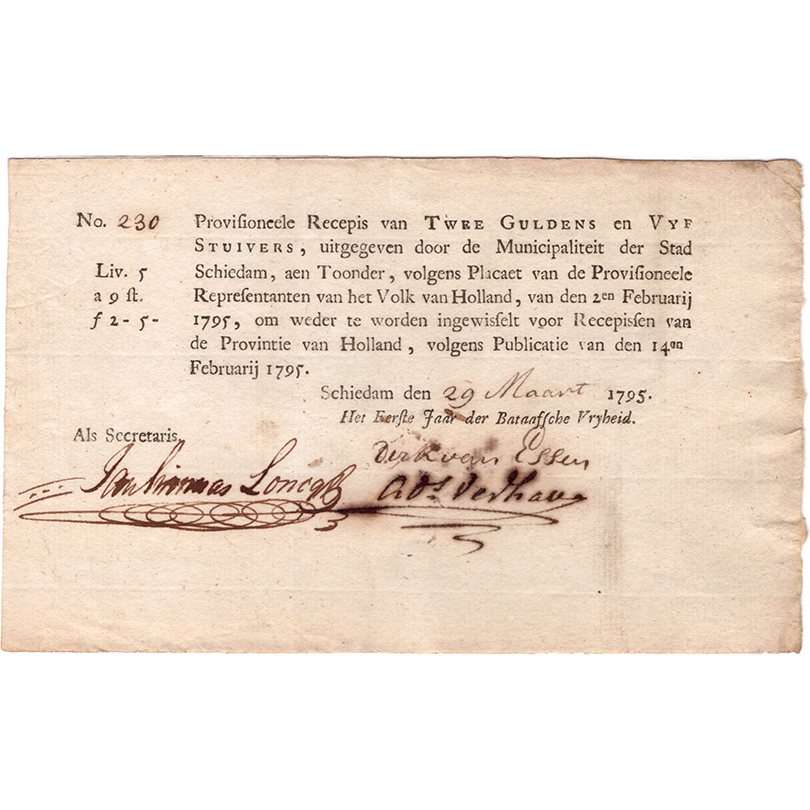 No. 230 Provisioneele Recepis van TWEE GULDENS en VYF
STUIVERS, uitgegeven door de Municipaliteit der Stad
Liv. 5 Schiedam, aen Toonder, volgens Placaet van de Provisioneele
a 9 st. Representanten van het Volk van Holland, van den 2en Februarij
f 2-5- 1795, om weder te worden ingewisselt voor Recepissen van
de Provintie van Holland, volgens Publicatie van den 14en
Februarij 1795.
Schiedam den 29 Maart 1795.
Het Eerste Jaar der Bataafsche Vryheid.
Als Secretaris,
Dirk van Essen
Loncq